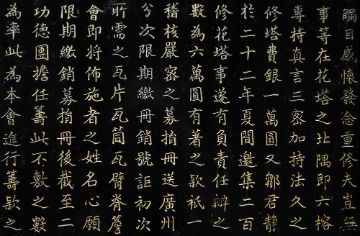 矚目感悽發念重修夫豈無
事等在花塔之北隅即六榕
尊特真言三密加持法久之
修塔費銀一萬圓又鄒君靜
於二十二年夏間邀集二百
修花塔事遂
數為六萬圓有著之款祇一
稽核嚴密之募捐冊送廣州
分次限期繳冊銷號詎初次
所需之瓦片瓦筒瓦脊簷
會即將佈施者之姓名心願
限期繳銷募捐冊後截至二
功德圓擔任籌此不敷之數
為率此為本會進行籌款之